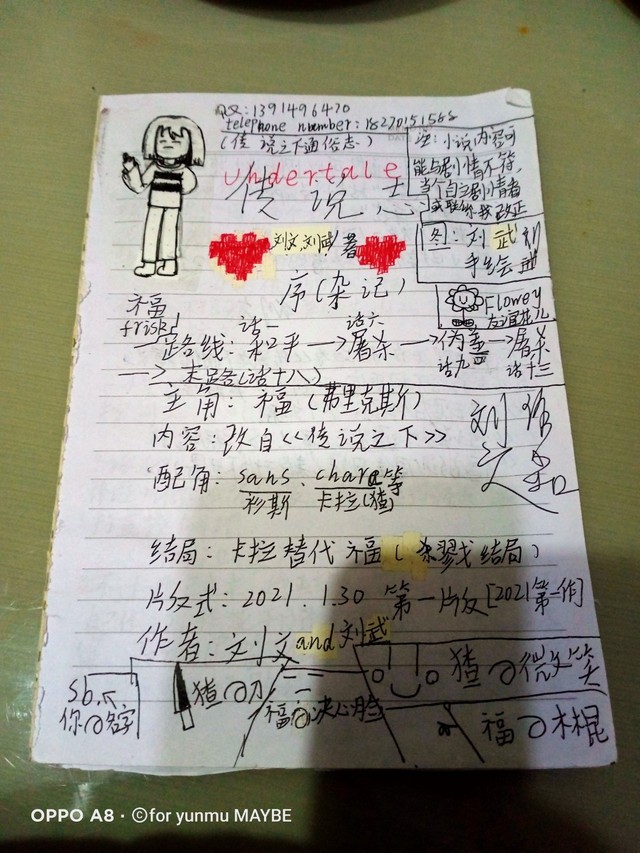 QQ:1391496470
telephone number:18270151588
(传说之下通俗志)
注:小说内容可
能与剧情不符,
当个自主剧情者
或联络我改正
undertale
传说志
刘文,刘武著
图:刘武
手绘
序(杂记)
Flowey
福
frisk
话一 话六
路线:和平→屠杀→伪善→屠杀
话九 话十三
→末路(话十八)
主角:福(弗里克斯)
内容:改自《传说之下》
配角:sans、chara等
衫斯 卡拉(猹)
结局:卡拉替代福(杀戮结局)
片反式:2021.1.30 第一片反[2021第一作]
作者:刘文and刘武
sb.
你の名字
猹の刀
福の决心
猹の微笑
福の木棍
OPPO A8 · ©for yunmu MAYBE